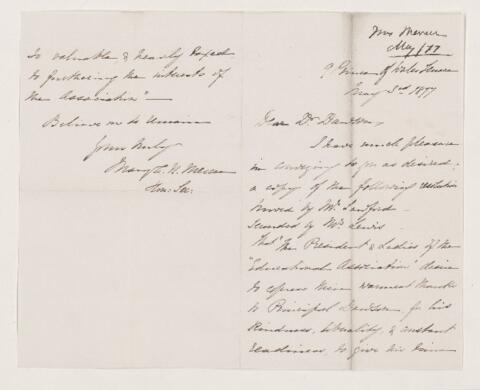 Mrs Mercer
May/77
9 Prince of Wales Terrace
May 3rd 1877
Dear Dr Dawson,
I have much pleasure
in conveying to you as desired,
a copy of the following resolution
moved by Mrs
seconded by Mrs Lewis
That "the President & Ladies of the
"Educational Association" desire
to express their warmest thanks
to Principal Dawson for his
kindness, liberality, & constant
readiness, to give his time
so valuable, & heavily taxed
to furthering the interests of
the Association"—
Believe me to remain
Yours truly
Mercer
Hon: Sec: